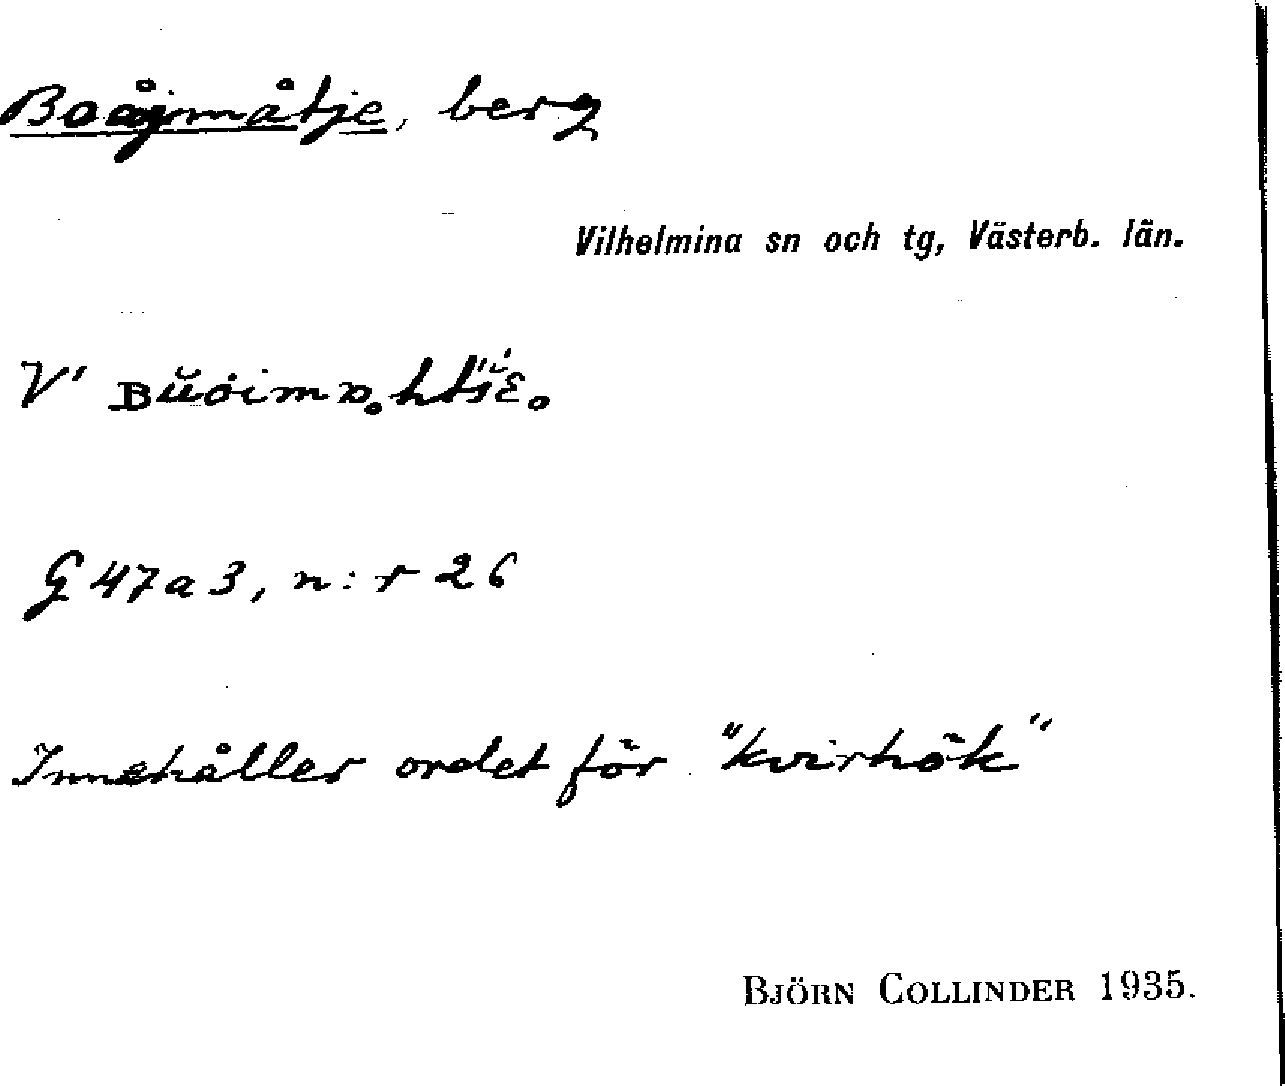 Boåjmåtje, berg
Vilhelmina sn och tg, Västerb. län.
V'
G 47a3, n:r 26
Innehåller ordet för "kvirhök"
BJÖRN COLLINDER 1935.